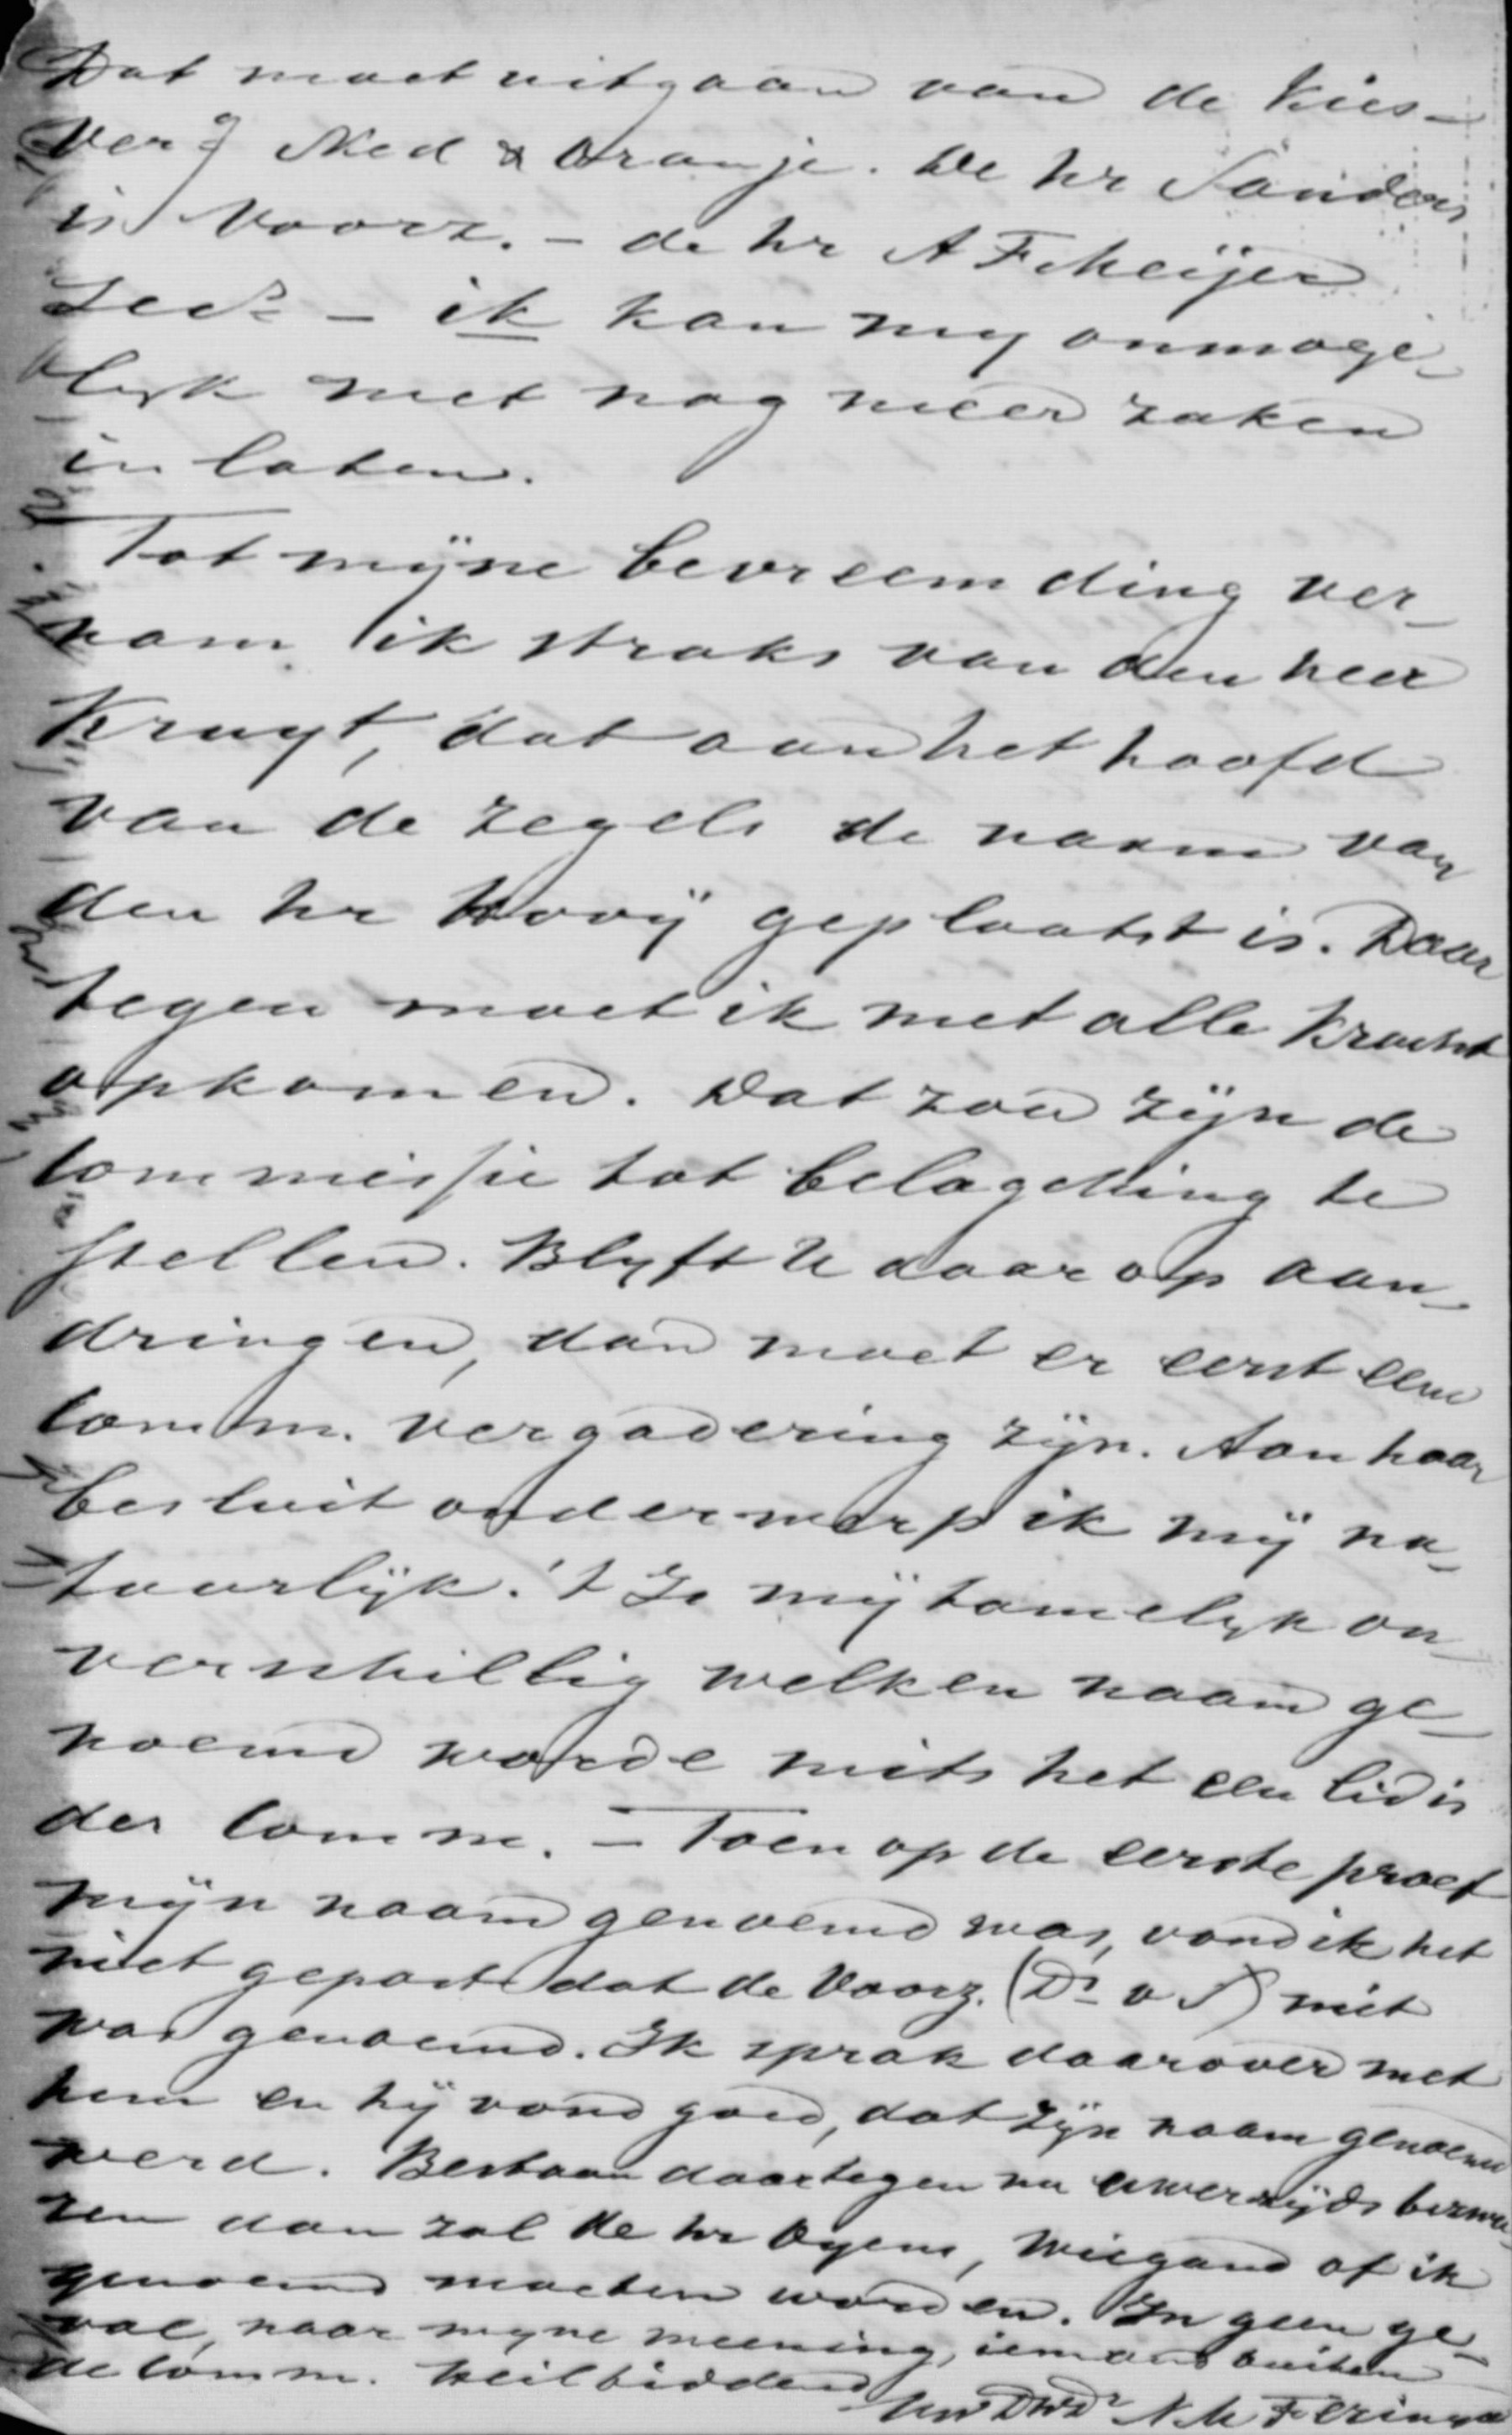 Dat moet uitgaan van de Kies-
ver.g Ned & Oranje. De hr Sanders
is Voorz. – de hr A F Meijer
Secr – ik kan my onmoge-
lyk met nog meer zaken
in laten.
Tot mijne bevreemding ver-
nam ik straks van den heer
Kruyt, dat aan het hoofd
van de zegels de naam van
den hr Hovij geplaatst is. Daar
tegen moet ik met alle kracht
opkomen. Dat zou zijn de
commissie tot belagching te
stellen. Blyft U daarop aan-
dringen, dan moet er eerst een
comm. vergadering zijn. Aan haar
besluit onderwerp ik mij na-
tuurlijk. 't Is mij tamelyk on-
verschillig welken naam ge-
noemd worde mits het een lid is
der comm. – Toen op de eerste proef
mijn naam genoemd was, vond ik het
niet gepast dat de Voorz. (Dr v S) niet
was genoemd. Ik sprak daarover met
hem en hij vond goed, dat zijn naam genoemd
werd. Bestaan daartegen nu uwerzijds bezwa-
ren dan zal de hr Oyens, Wiegand of ik
genoemd moeten worden. In geen ge-
val, naar myne meening, iemand buiten
de comm. Heilbiddend
Uw DWDr N M Feringa